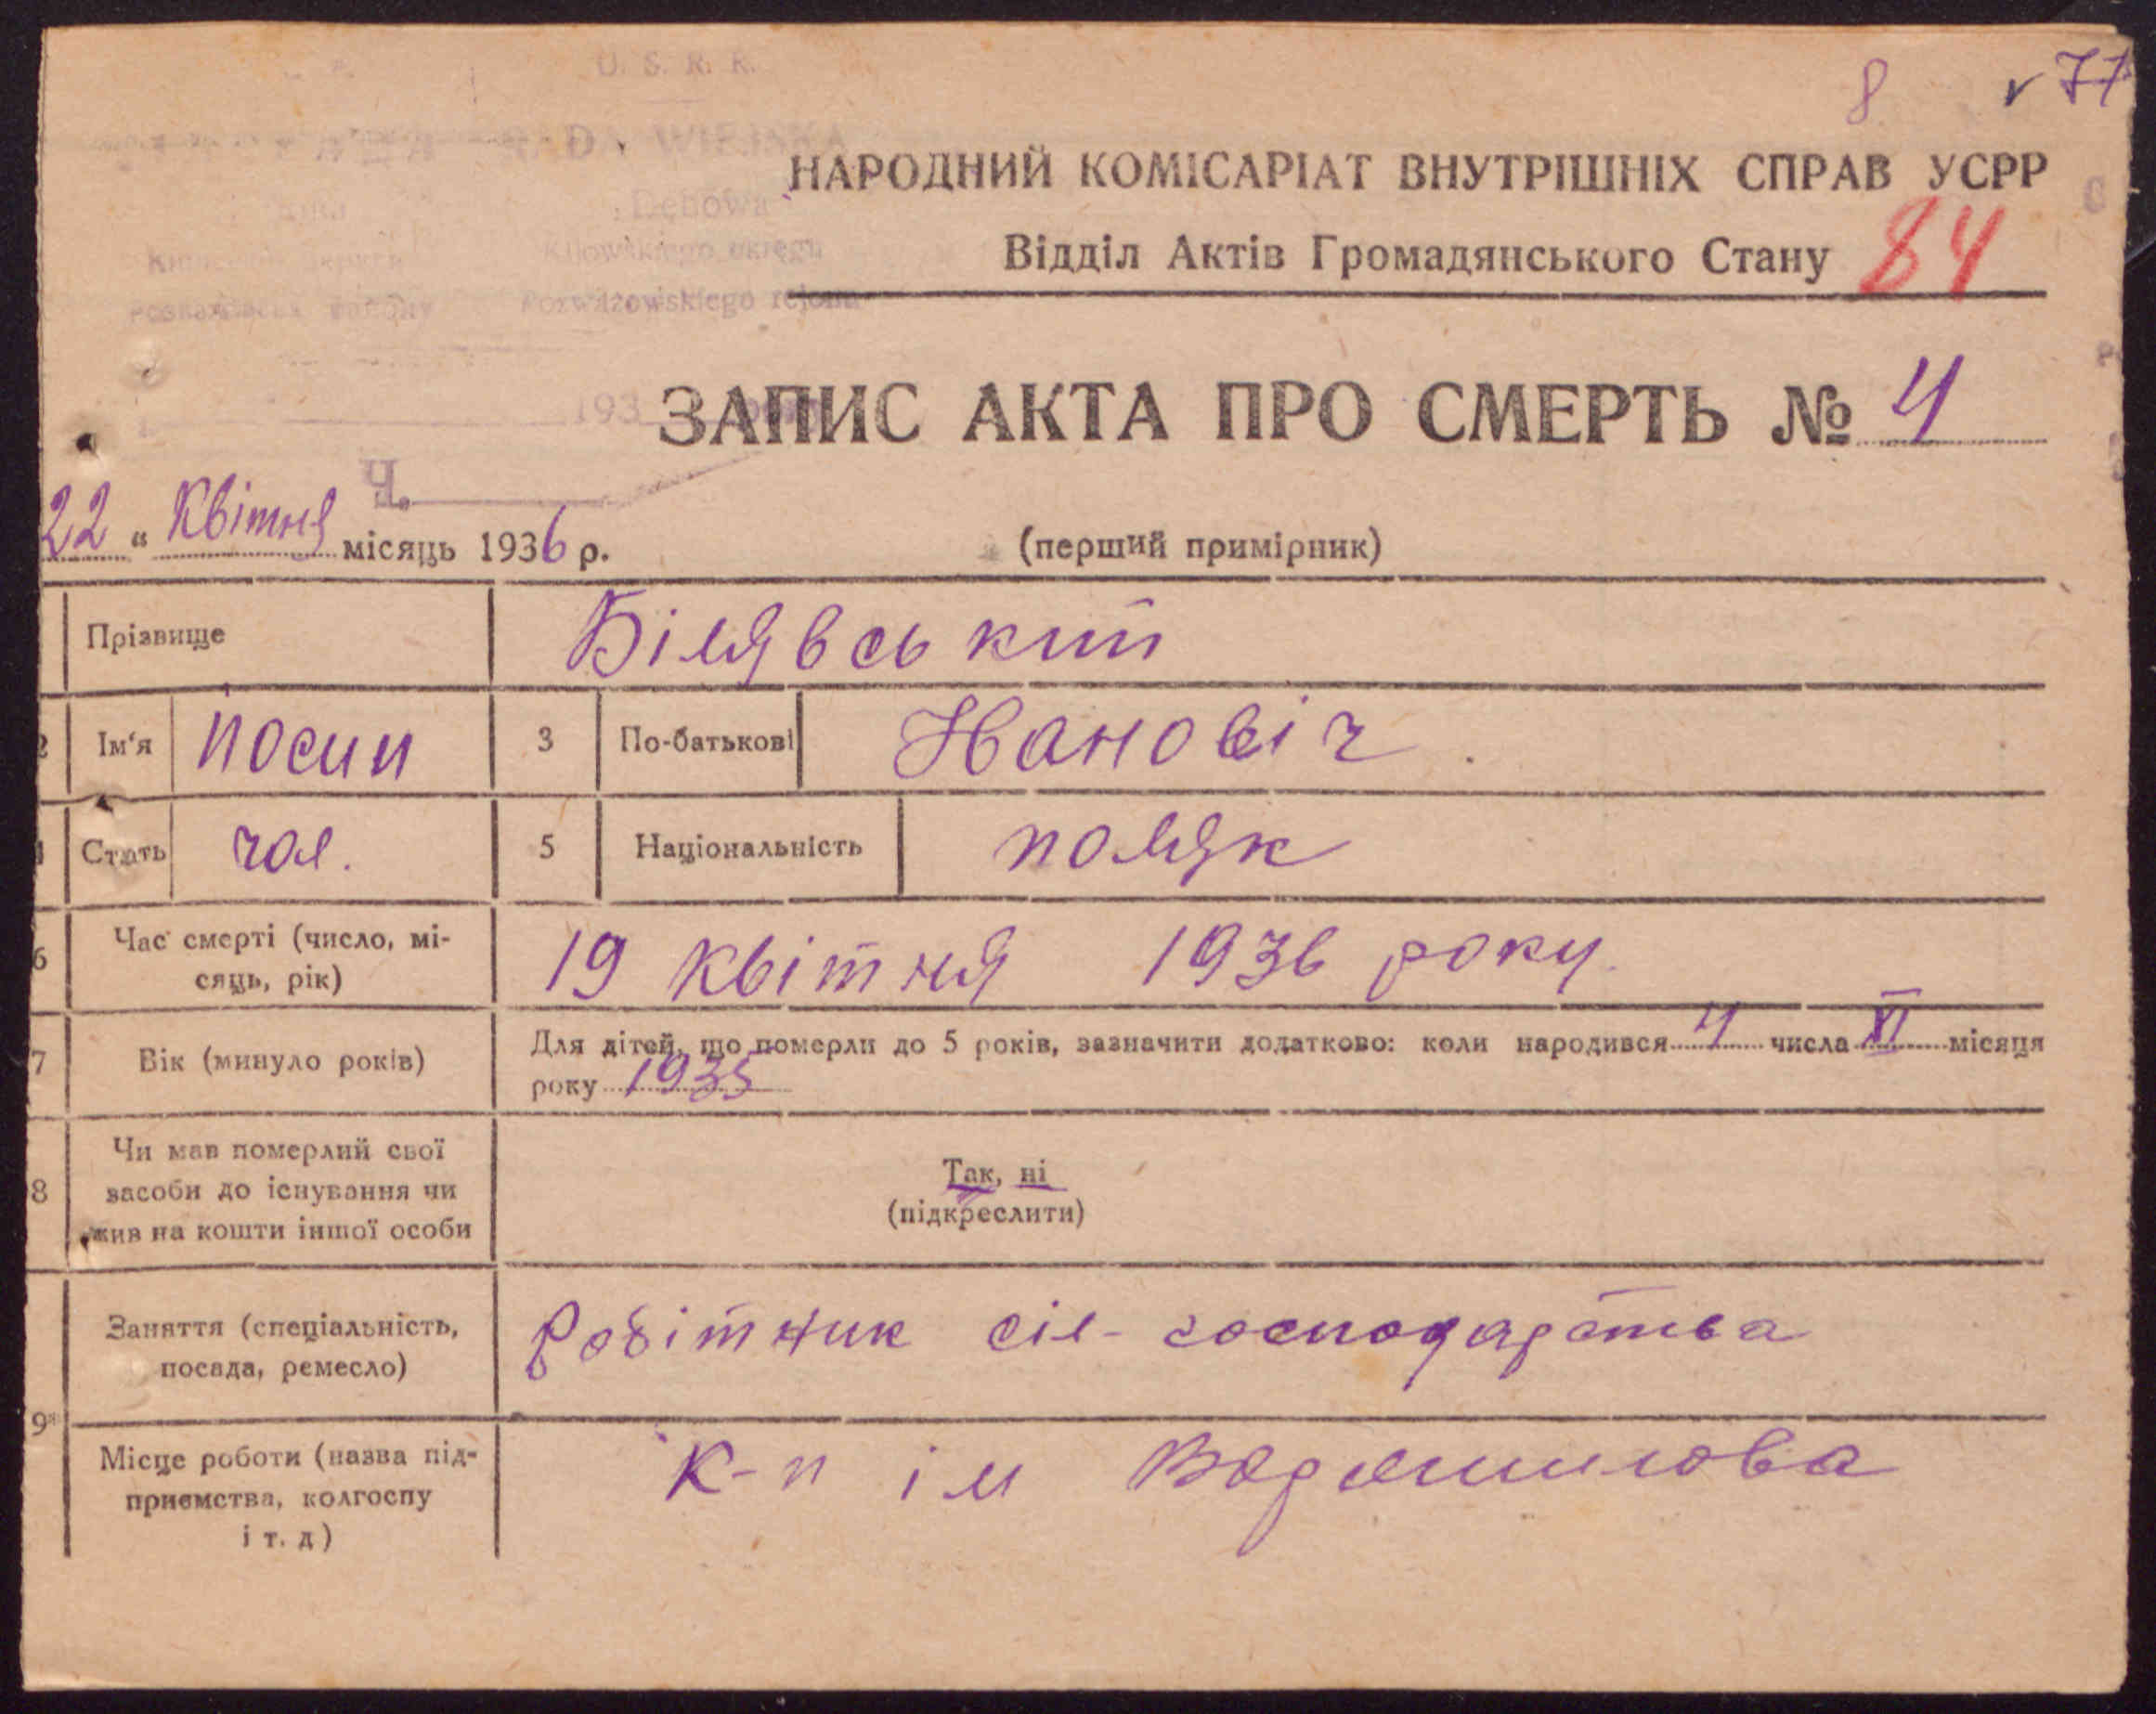 U. S. R. R.
8 v 71
WIEJSKA
НАРОДНИЙ КОМІСАРІАТ ВНУТРІШНІХ СПРАВ УСРР
Dębowa
Відділ Актів Громадянського Стану 84
Kijowskiego okręgu
Rozważowskiego rejonu
ЗАПИС АКТА ПРО СМЕРТЬ № 4
193
Ч.
22 " Квітня місяць 1936 р.
(перший примірник)
Прізвище Білявський
2 Ім'я Йосип 3 По-батькові Яановіч
4 Стать чол. 5 Національність поляк
6 Час смерті (число, мі-
сяць, рік) 19 квітня 1936 року.
7 Вік (минуло років) Для дітей, що померли до 5 років, зазначити додатково: коли народився 4 числа XI місяця
року 1935
8 Чи мав померлий свої
засоби до існування чи
жив на кошти іншої особи
Так, ні
(підкреслити)
9 Заняття (спеціальність,
посада, ремесло) Робітник сіл-господарства
Місце роботи (назва під-
приємства, колгоспу
і т. д) К-п ім Ворошилова